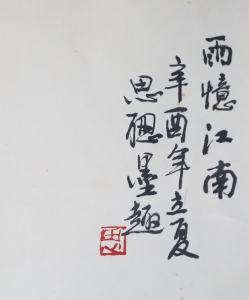 雨憶江南
辛酉年立夏
思聰墨趣